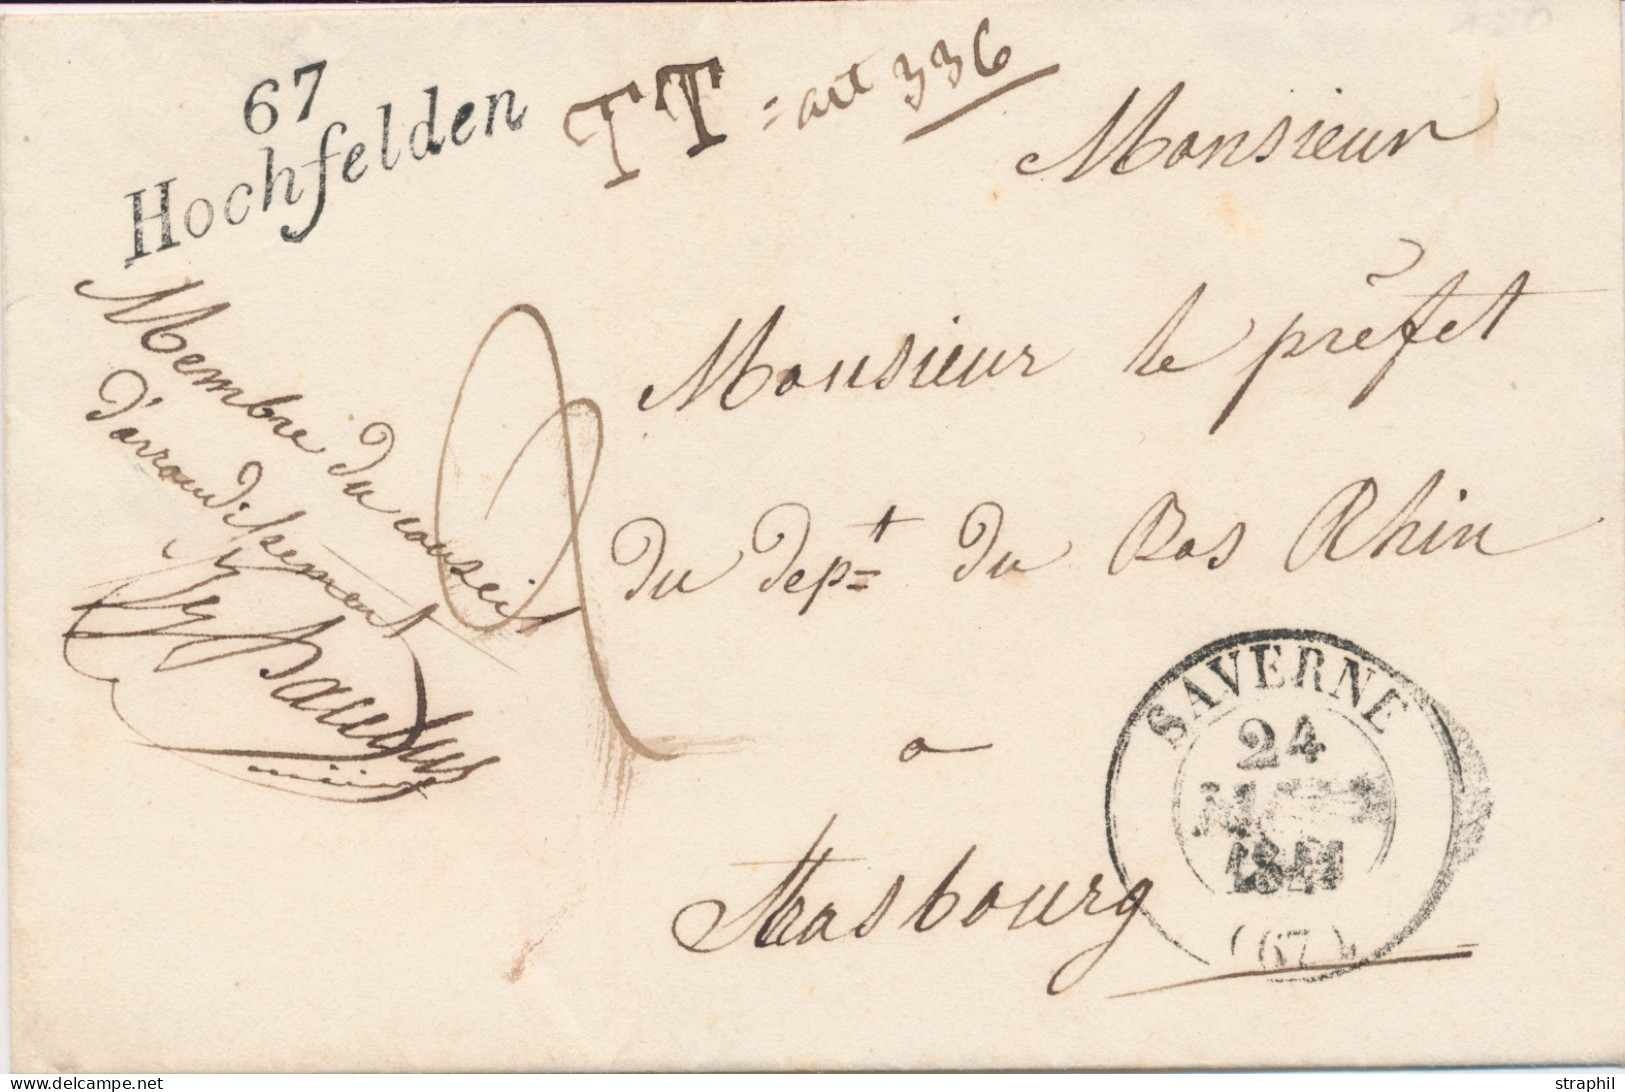 67
Hochfelden
TT = art 336
Monsieur
Monsieur le préfet
du dept du Bas Rhin
a
Strasbourg
Membre du conseil
d'arrondissement
SAVERNE
24
1841
(67)
delcampe.net
straphil